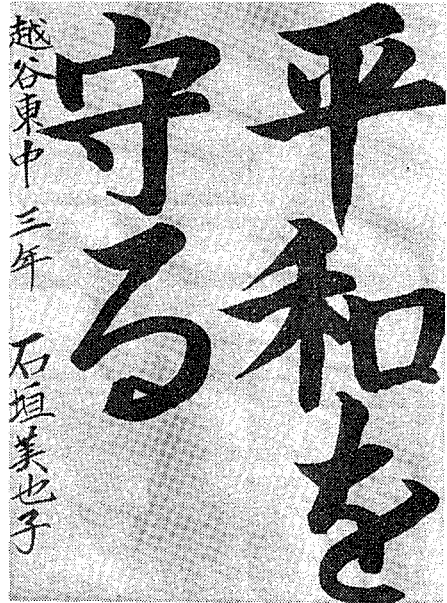 平和を
守る
越谷東中 三年 石垣美也子